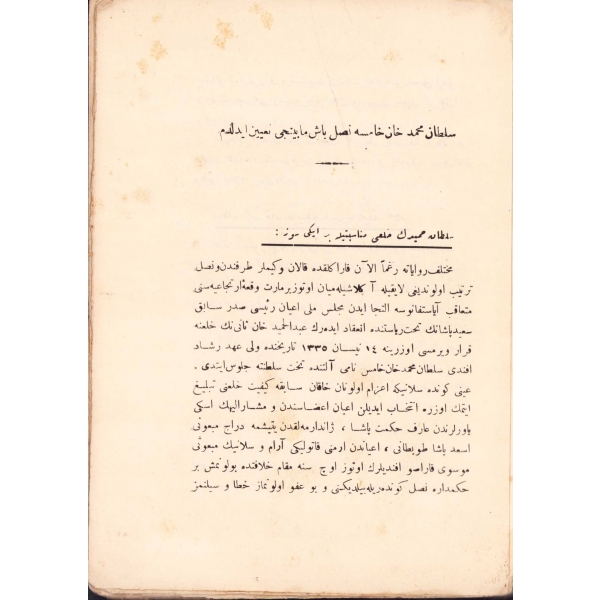 سلطان محمد خان خامسه نصل باش مابينجى تعيين ايدلدم
سلطان حميدك خلعى مناسبتيله بر ايكى سوز :
مختلف رواياته رغماً الآن قاراكلقده قالان وكيملر طرفندن ونصل
ترتيب اولونديغى لايقيله آ كلاشيله‌ميان اوتوز بر مارت وقعهٔ ارتجاعيه‌سنى
متعاقب آياستفانوسه التجا ايدن مجلس ملى اعيان رئيسى صدر سابق
سعيد پاشانك تحت رياستنده انعقاد ايده‌رك عبدالحميد خان ثانى‌نك خلعنه
قرار ويرمسى اوزرينه ١٤ نيسان ١٣٣٥ تاريخنده ولى عهد رشاد
افندى سلطان محمد خان خامس نامى آلتنده تخت سلطنته جلوس ايتدى .
عينى كونده سلانيكه اعزام اولونان خاقان سابقه كيفيت خلعنى تبليغ
ايتمك اوزره انتخاب ايديلن اعيان اعضاسندن و مشاراليهك اسكى
ياورلرندن عارف حكمت پاشا ، ژاندارمه‌لقدن يتيشمه دراج مبعوثى
اسعد پاشا طوپطانى ، اعياندن ارمنى قاتوليكى آرام و سلانيك مبعوثى
موسوى قاراصو افنديلرك اوتوز اوچ سنه مقام خلافتده بولونمش بر
حكمداره نصل كونده‌ريله‌بيلديكنى و بو عفو اولونماز خطا و سيلنمز